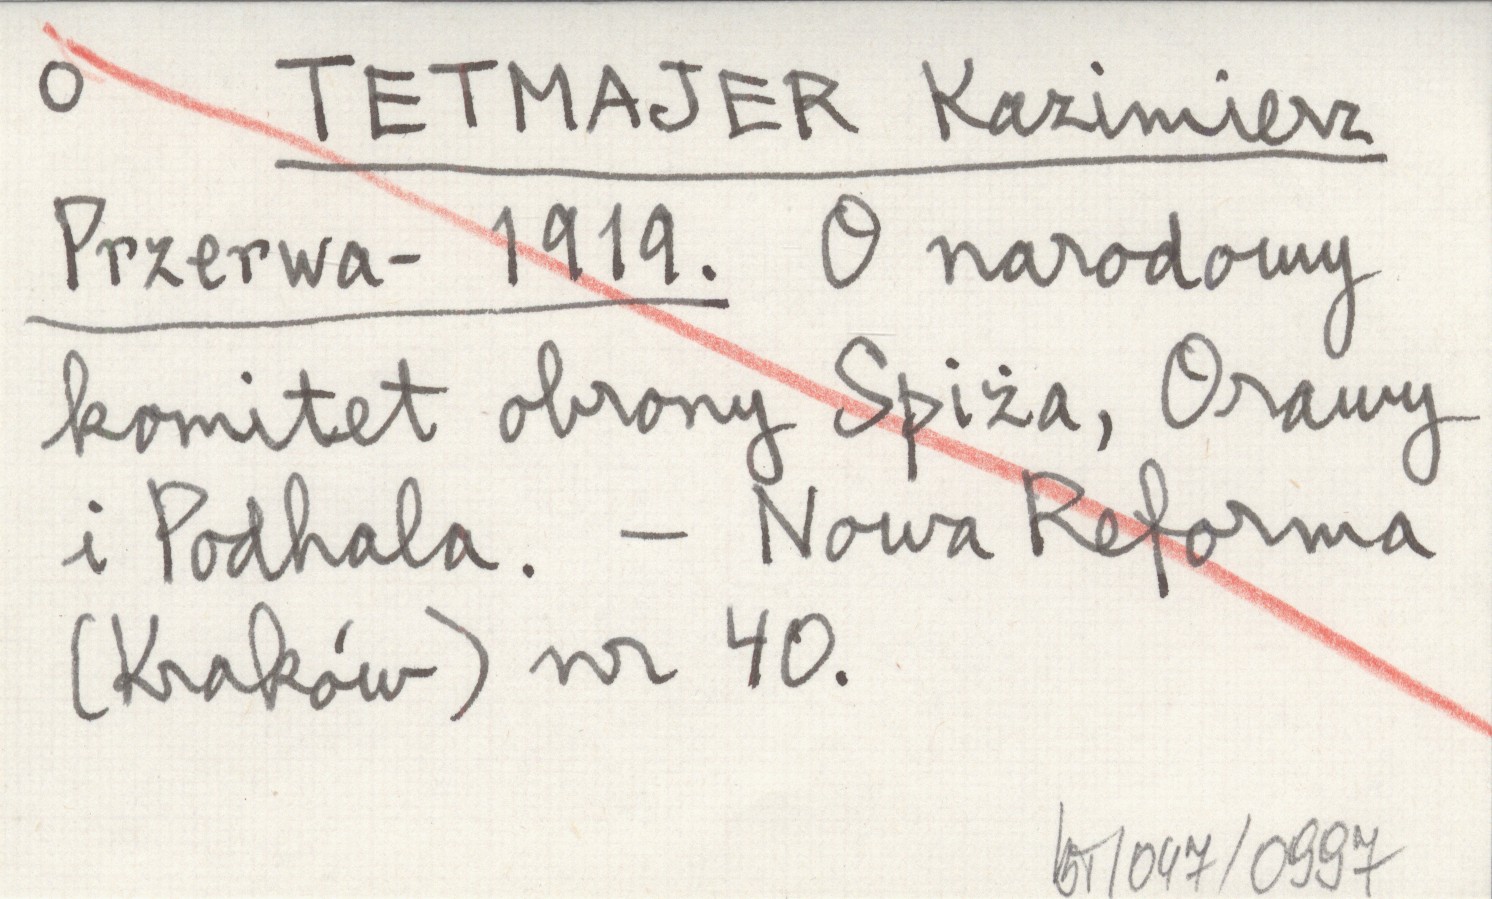 O TETMAJER Kazimierz
Przerwa- 1919. O narodowy
komitet obrony Spiża, Orawy
i Podhala. – Nowa Reforma
(Kraków) nr 40.
/047/0997